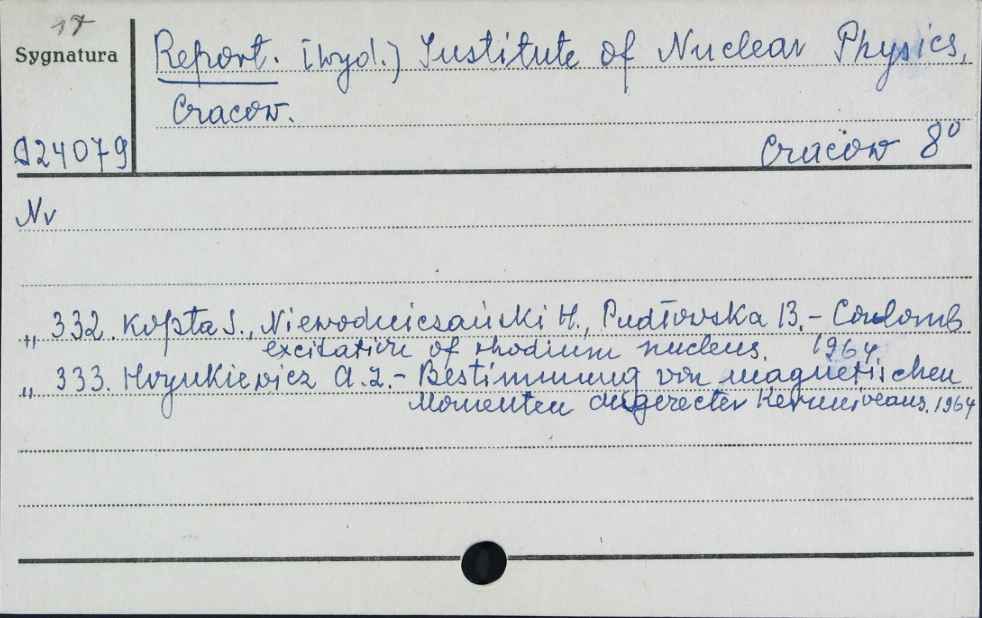 17
Sygnatura
Report. [wyd.] Institute of Nuclear Physics,
Cracow.
A24079
Cracow 8°
Nr
„ 332. Kopta S., Niewodniczański H., Pudłowska B. - Coulomb
excitation of rhodium nucleus. 1964.
„ 333. Hrynkiewicz A.Z. - Bestimmung von magnetischen
Momenten angeregter Kernniveaus. 1964